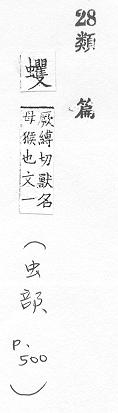 28類篇
蠼
厥縛切獸名
母猴也文一
(虫
p.
500)